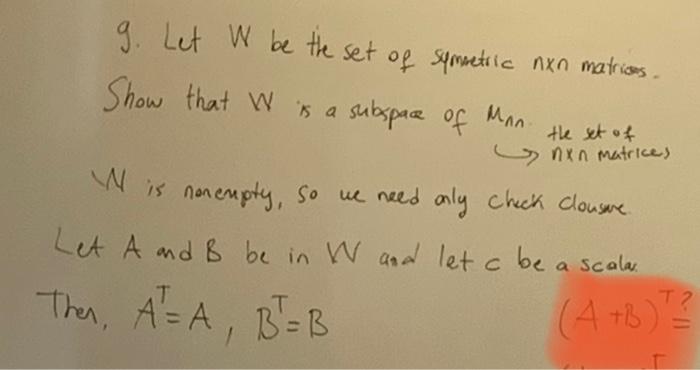 9. Let W be the set of symmetric nxn matrices.
Show that W is a subspace of Mnn.
the set of
→ nxn matrices
W is nonempty, so we need only check closure.
Let A and B be in W and let c be a scalar.
Then, Aᵀ = A, Bᵀ = B
(A+B)ᵀ ?=